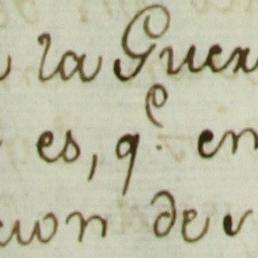 la Guer
es, q.e en
cion de